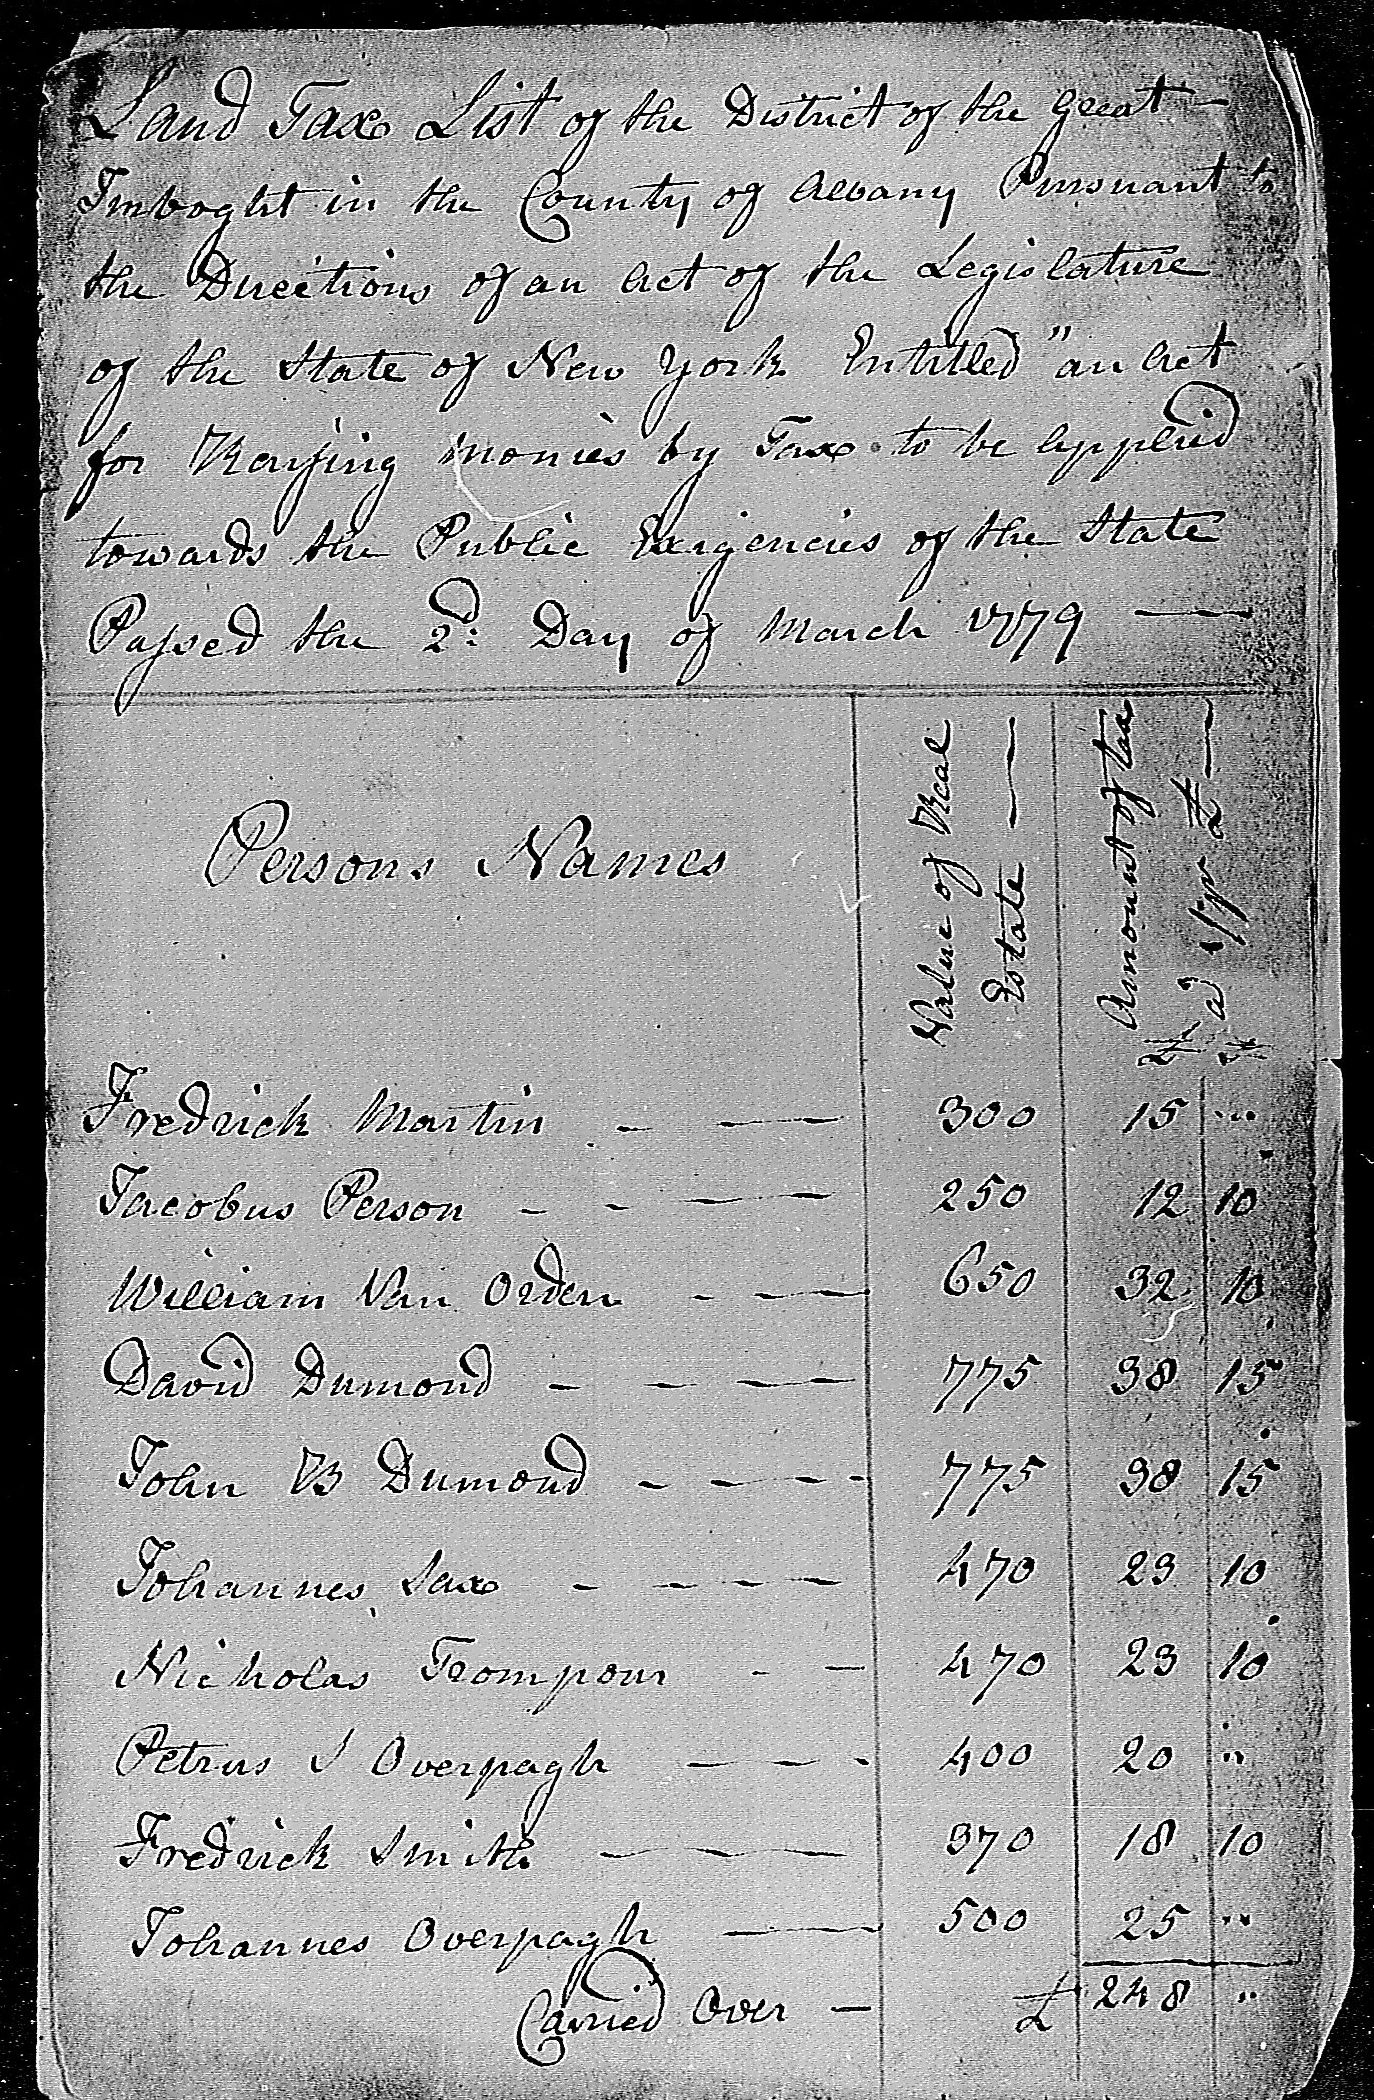 Land Tax List of the District of the Great
Imboght in the County of Albany Pursuant to
the Directions of an Act of the Legislature
of the State of New York Entitled "an Act
for Raysing monies by Tax to be Applied
towards the Public Exigencies of the State
Passed the 2d: Day of March 1779 —
Persons Names
Value of Real
Estate —
Amount of tax
a 1/ pr £ —
£ s
Fredrick Martin - — 300 15 "
Jacobus Person - - — 250 12 10
William Van Orden - — 650 32 10
David Dumond - - — 775 38 15
John B Dumond - - - - 775 38 15
Johannes Sax - - - — 470 23 10
Nicholas Trompour - - 470 23 10
Petrus J Overpagh - - - 400 20 "
Fredrick Smith — 370 18 10
Johannes Overpagh — 500 25 "
Carried Over — £ 248 "